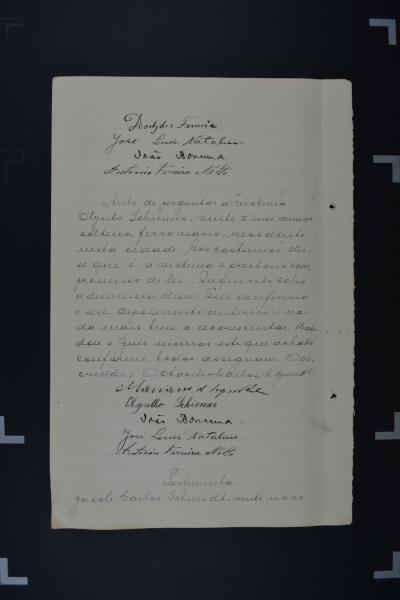 Deodydes Ferreira
José Luiz Natalino
João Bonuma
Antonio Ferreira Netto
Auto de perguntas á victima
Olyntho Schimer, vinte e um annos
solteiro, ferroviario, residente
nesta cidade. Aos costumes dis-
se que é a victima e prestou com
promisso de lei. Inquerido sobre
a denuncia disse: Que confirma
o seu depoimento anterior e na-
da mais tem a accrescentar. Man-
dou o Juiz encerrar este que achado
conforme todos assignam. O es-
crivão,
Mariano d
Olyntho Schirmer
João Bonuma.
José Luiz Natalino
Antonio Ferreira Netto
Testemunha
Jacob Carlos Schmidt, vinte e